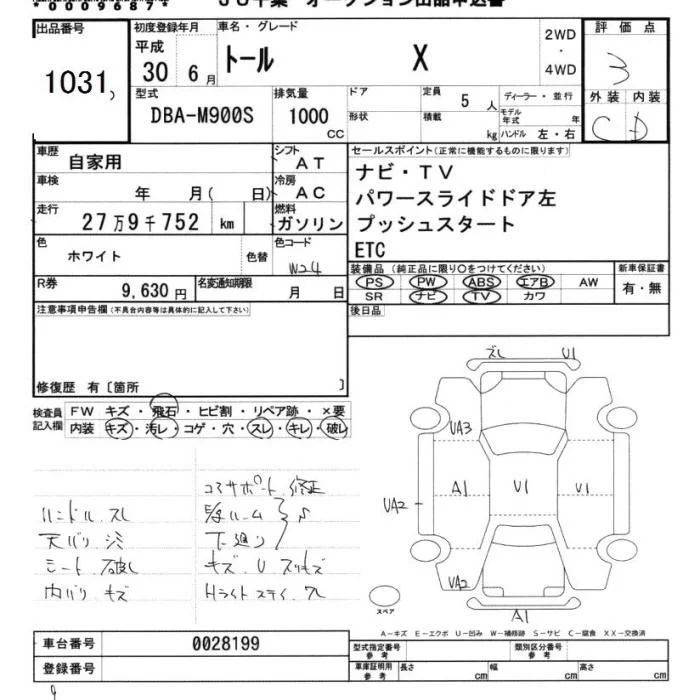 0096874 JU千葉 オークション出品申込書
出品番号 1031
初度登録年月 平成 30 6月
車名・グレード トール X
2WD ・ 4WD
評価点 3
外装 C 内装 D
型式 DBA-M900S
排気量 1000 CC
ドア 形状
定員 5 人 積載 kg
ディーラー・並行
モデル年式 年
ハンドル 左・右
車歴 自家用
シフト AT
車検 年 月( 日)
冷房 AC
走行 27万9千752 km
燃料 ガソリン
色 ホワイト 色替
色コード W24
R券 9,630円
名変通知期限 月 日
セールスポイント(正常に機能するものに限ります)
ナビ・TV
パワースライドドア左
プッシュスタート
ETC
装備品(純正品に限り○をつけてください)
PS PW ABS エアB AW
SR ナビ TV カワ
新車保証書 有・無
後日品
注意事項申告欄(不具合内容等は具体的に記入して下さい)
修復歴 有〔箇所 〕
検査員記入欄
FW キズ・飛石・ヒビ割・リペア跡・×要
内装 キズ・汚レ・コゲ・穴・スレ・キレ・破レ
コアサポート 修正
ハンドル スレ
天バリ
下廻り
シート 破レ
キズ U
内バリ キズ
Hライト ステイ
ズレ U1
UA3
A1 U1 U1
UA2
UA2
A1
スペア
A-キズ E-エクボ U-凹み W-補修跡 S-サビ C-腐食 XX-交換済
車台番号 0028199
登録番号
型式指定番号 参考
類別区分番号 参考
車庫証明用 参考 長さ cm 幅 cm 高さ cm